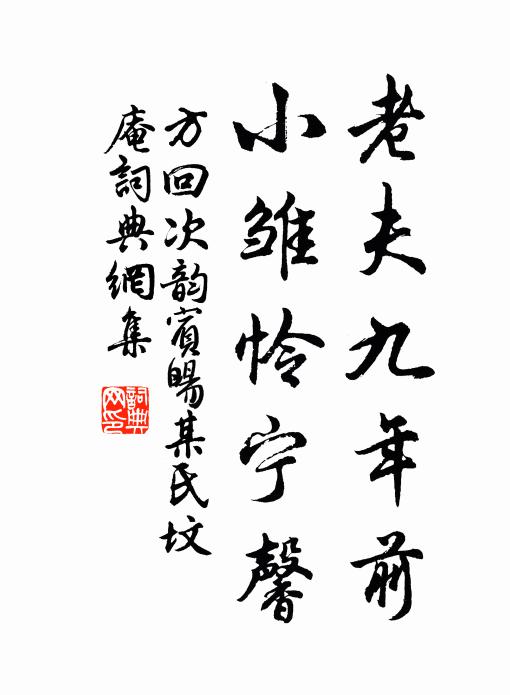 老夫九年前
小雏怜宁馨
方回次韵賓暘某氏坟
庵詞典網集
詞典网印